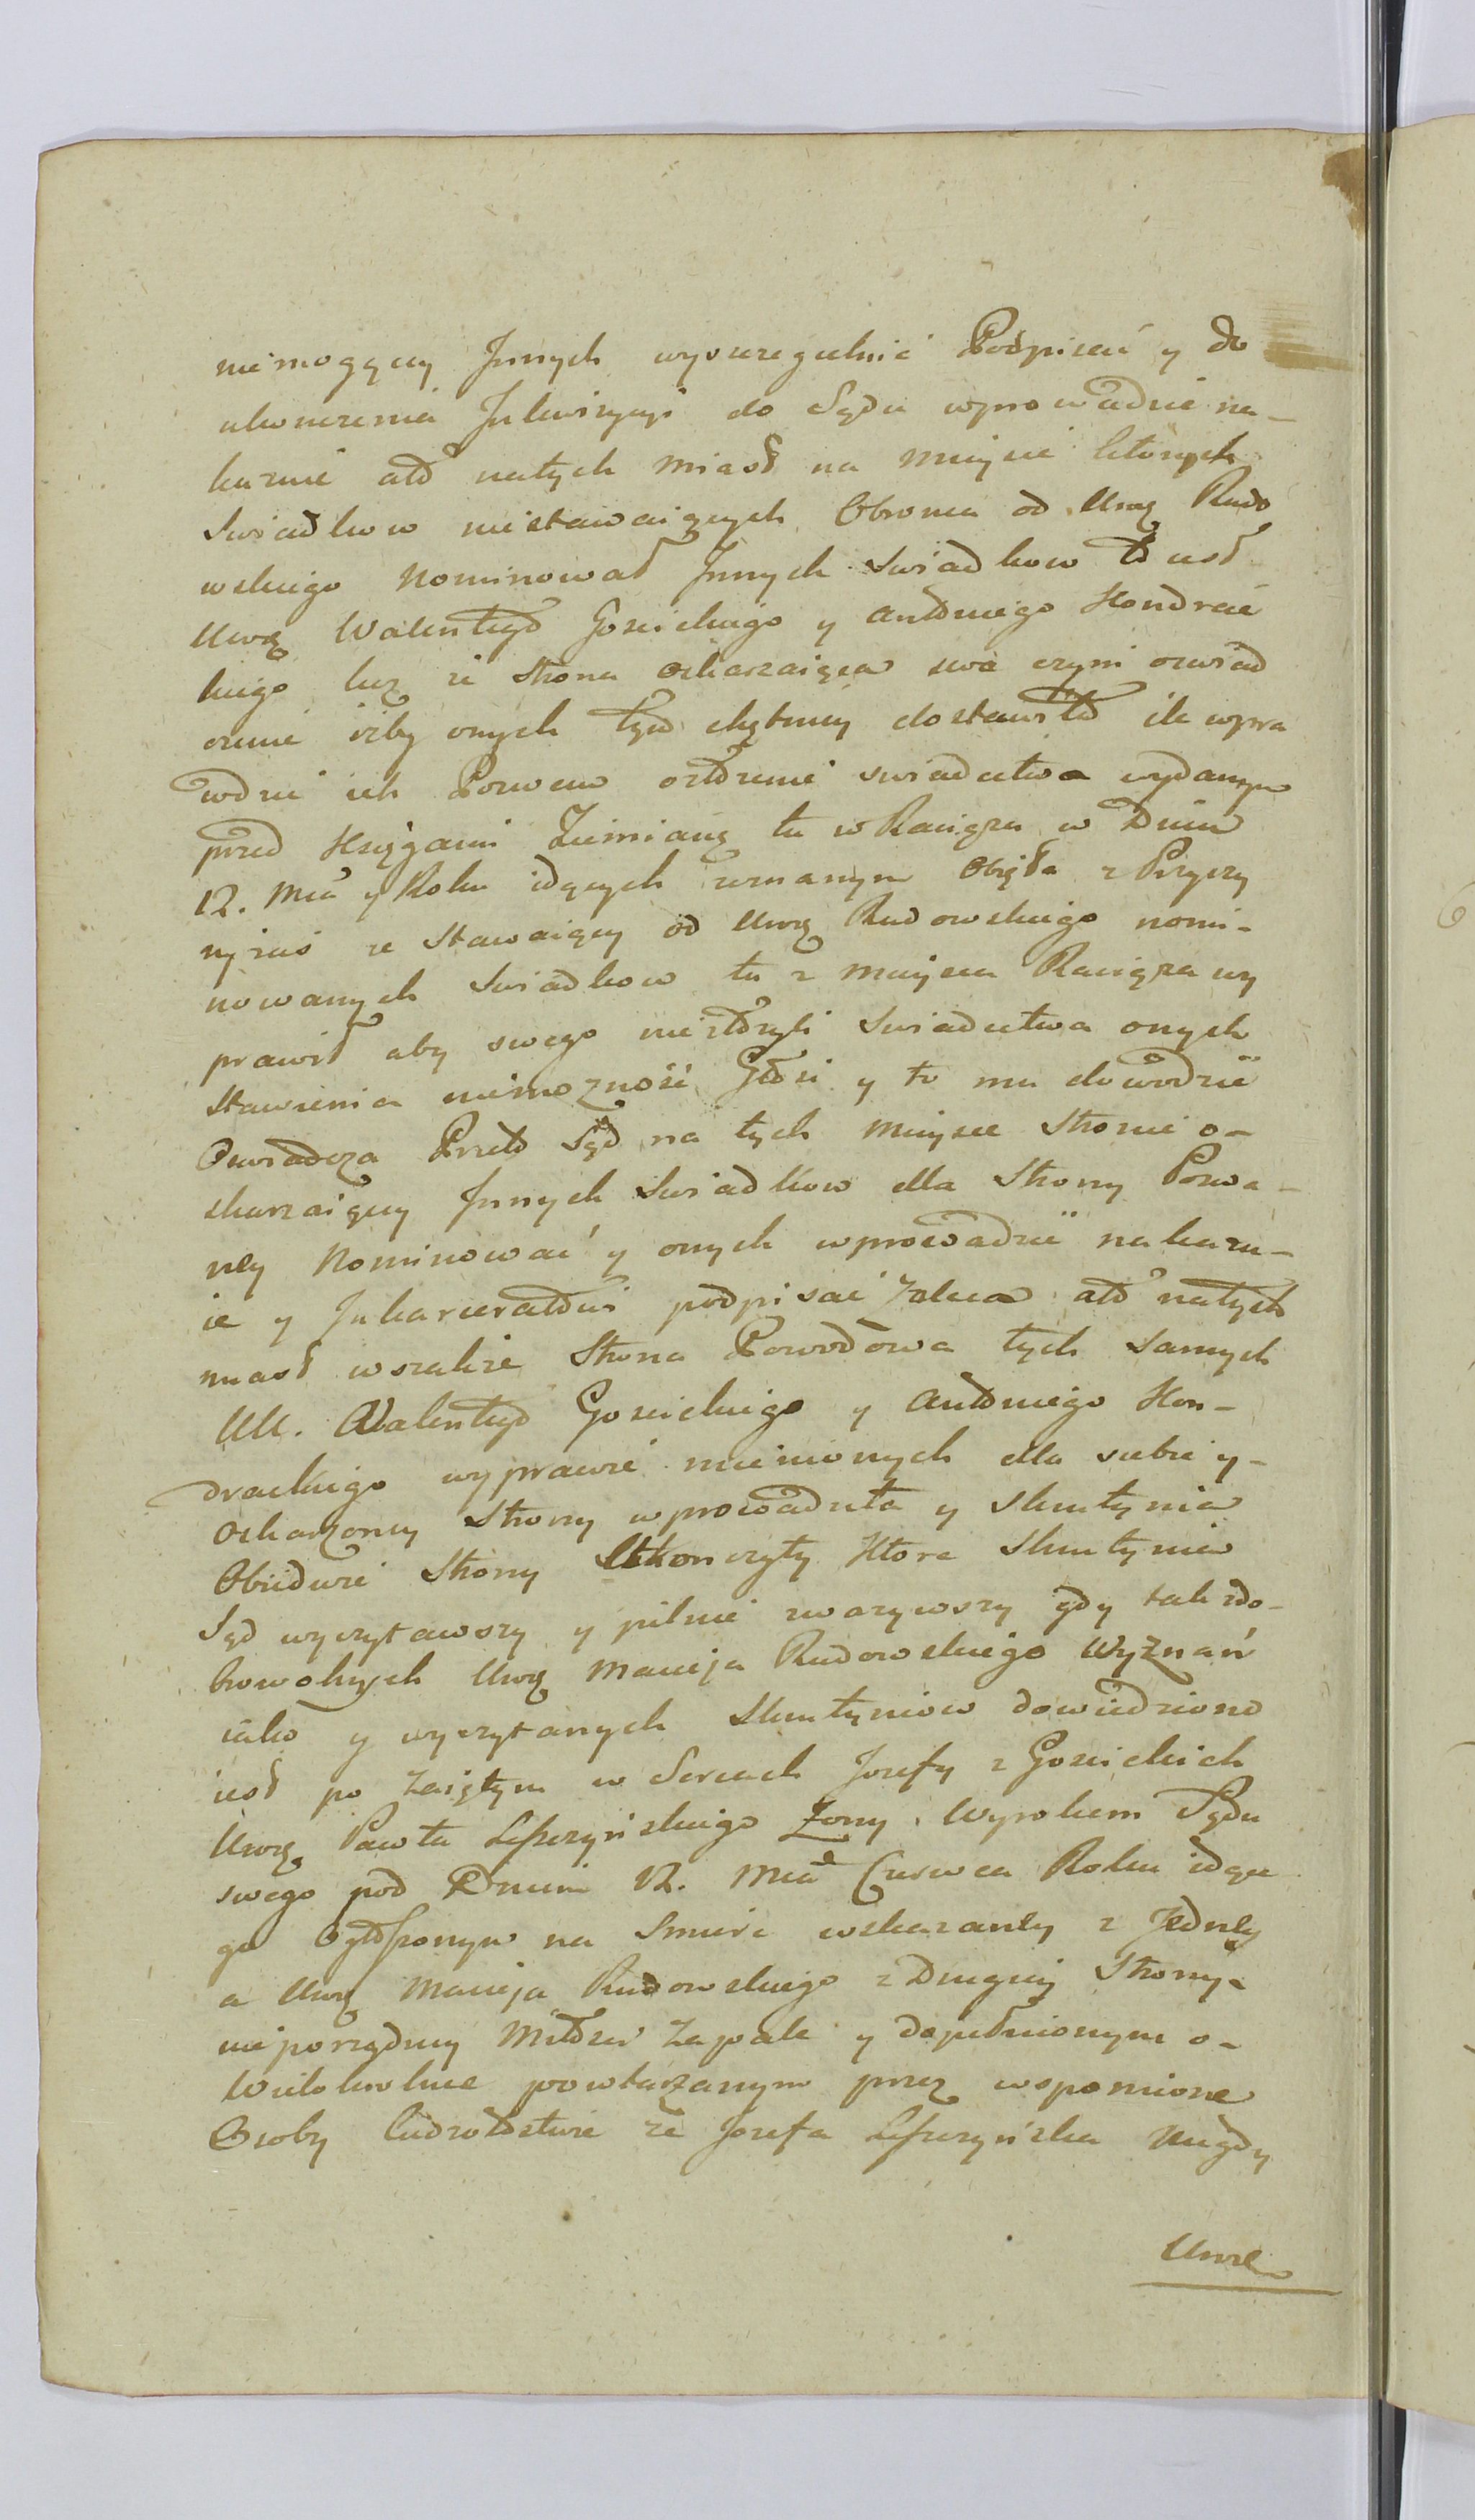 niemogący Jnnych wyszczegulnić Podpiseu y do
ukonczenia Jnkwizycyi do Sądu wprowadzić na-
kazuie atto natych miast na mieysce ktorych
Swiadkow niestawaiących Obronca od Urog Rudo
wskiego Nominował Jnnych Swiadkow to iest
Urog Walentego Gosickiego y Antoniego Kondrac
kiego lecz że Strona Oskarzaiąca swe czyni oswiad
czenie iżby onych tym chętniey dostawiła ile wpra
wdzie ich Pozwem o stwierdzenie swiadectwa wydanym
przed Xsięgami Ziemiang tu w Raciążu w Dniu
12. Mca y Roku idących zeznanym Obięła z Przyczy
ny zaś że Stawaiący od Urog Rudowskiego nomi-
nowanych Swiadkow tu z mieysca Raciąża wy
prawił aby swego nie Swiadectwa onych
stawienia niemozność Głosi y to mu dowodzić
Oswiadcza Przeto Sąd na tych mieysce Stronie o-
skarzaiącey Jnnych Swiadkow dla Strony Pozwa-
ney Nominować y onych wprowadzić nakazu-
ie y Jnkarceratowi podpisać Zaleca atto natych
miast wszakże Strona Powodowa tych samych
UU. Walentego Gosickiego y Antoniego Kon-
drackiego wyprawie mienionych dla siebie y-
Oskarzoney Strony wprowadziła y Skrutynia
Obiedwie Strony Ukonczyły Ktore Skrutynia
Sąd wyczytawszy y pilnie zwazywszy gdy tak zdo-
browolnych Urog Macieja Rudowskiego Wyznań
iako y wyczytanych Skrutyniow dowiedziono
iest po Zaiętym w Sercach Jozefy z Gosickich
Urog Pawła Leszczynskiego Zony, Wyrokiem Sądu
swego pod Dniem 12. Mca Czerwca Roku idące
go Ogłoszonym na Smierc wskazaney z Jedney
a Urog Macieja Rudowskiego z Drugiey Strony
nieporządney Miłości Zapale y dopełnionym o-
Wielokrotnie powtarzanym przez wspomione
Osoby Cudzołostwie że Jozefa Leszczyńska Nigdy
Uwol